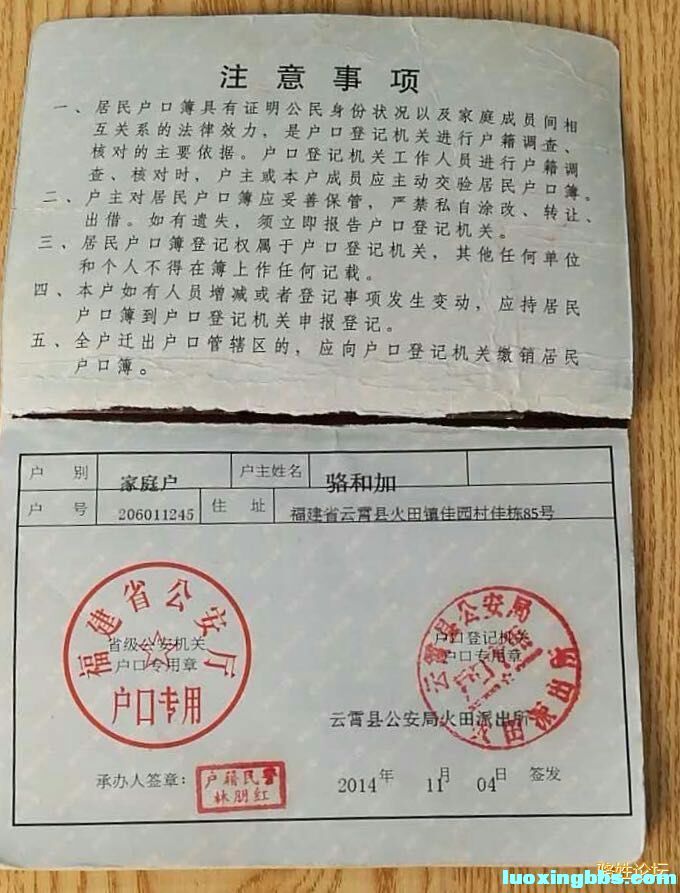 注意事项
一、居民户口簿具有证明公民身份状况以及家庭成员间相
互关系的法律效力，是户口登记机关进行户籍调查、
核对的主要依据。户口登记机关工作人员进行户籍调
查、核对时，户主或本户成员应主动交验居民户口簿。
二、户主对居民户口簿应妥善保管，严禁私自涂改、转让、
出借。如有遗失，须立即报告户口登记机关。
三、居民户口簿登记权属于户口登记机关，其他任何单位
和个人不得在簿上作任何记载。
四、本户如有人员增减或者登记事项发生变动，应持居民
户口簿到户口登记机关申报登记。
五、全户迁出户口管辖区的，应向户口登记机关缴销居民
户口簿。
户别 家庭户 户主姓名 骆和加
户号 206011245 住址 福建省云霄县火田镇佳园村佳栋85号
福建省公安厅
省级公安机关
户口专用章
户口专用
云霄县公安局
户口登记机关
户口专用章
火田派出所
云霄县公安局火田派出所
承办人签章：
户籍民警
林朋红
2014年 11月 04日 签发
骆姓论坛
luoxingbbs.com